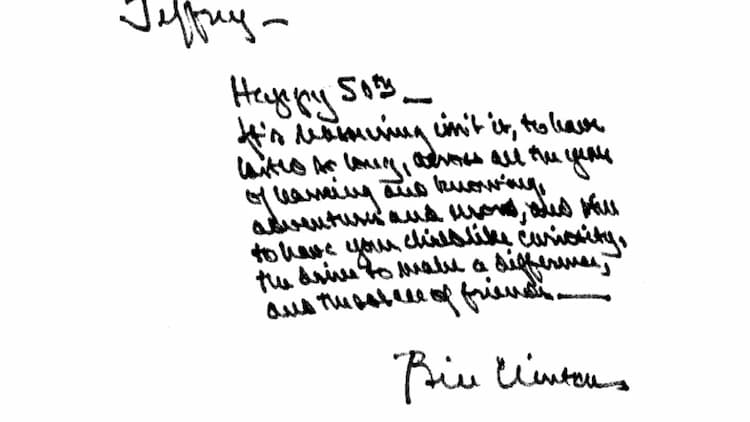 Jeffrey —
Happy 50th —
It's reassuring isn't it, to have
lasted as long, across all the years
of learning and knowing,
adventures and , and still
to have your childlike curiosity,
the drive to make a difference,
and the solace of friends. —
Bill Clinton